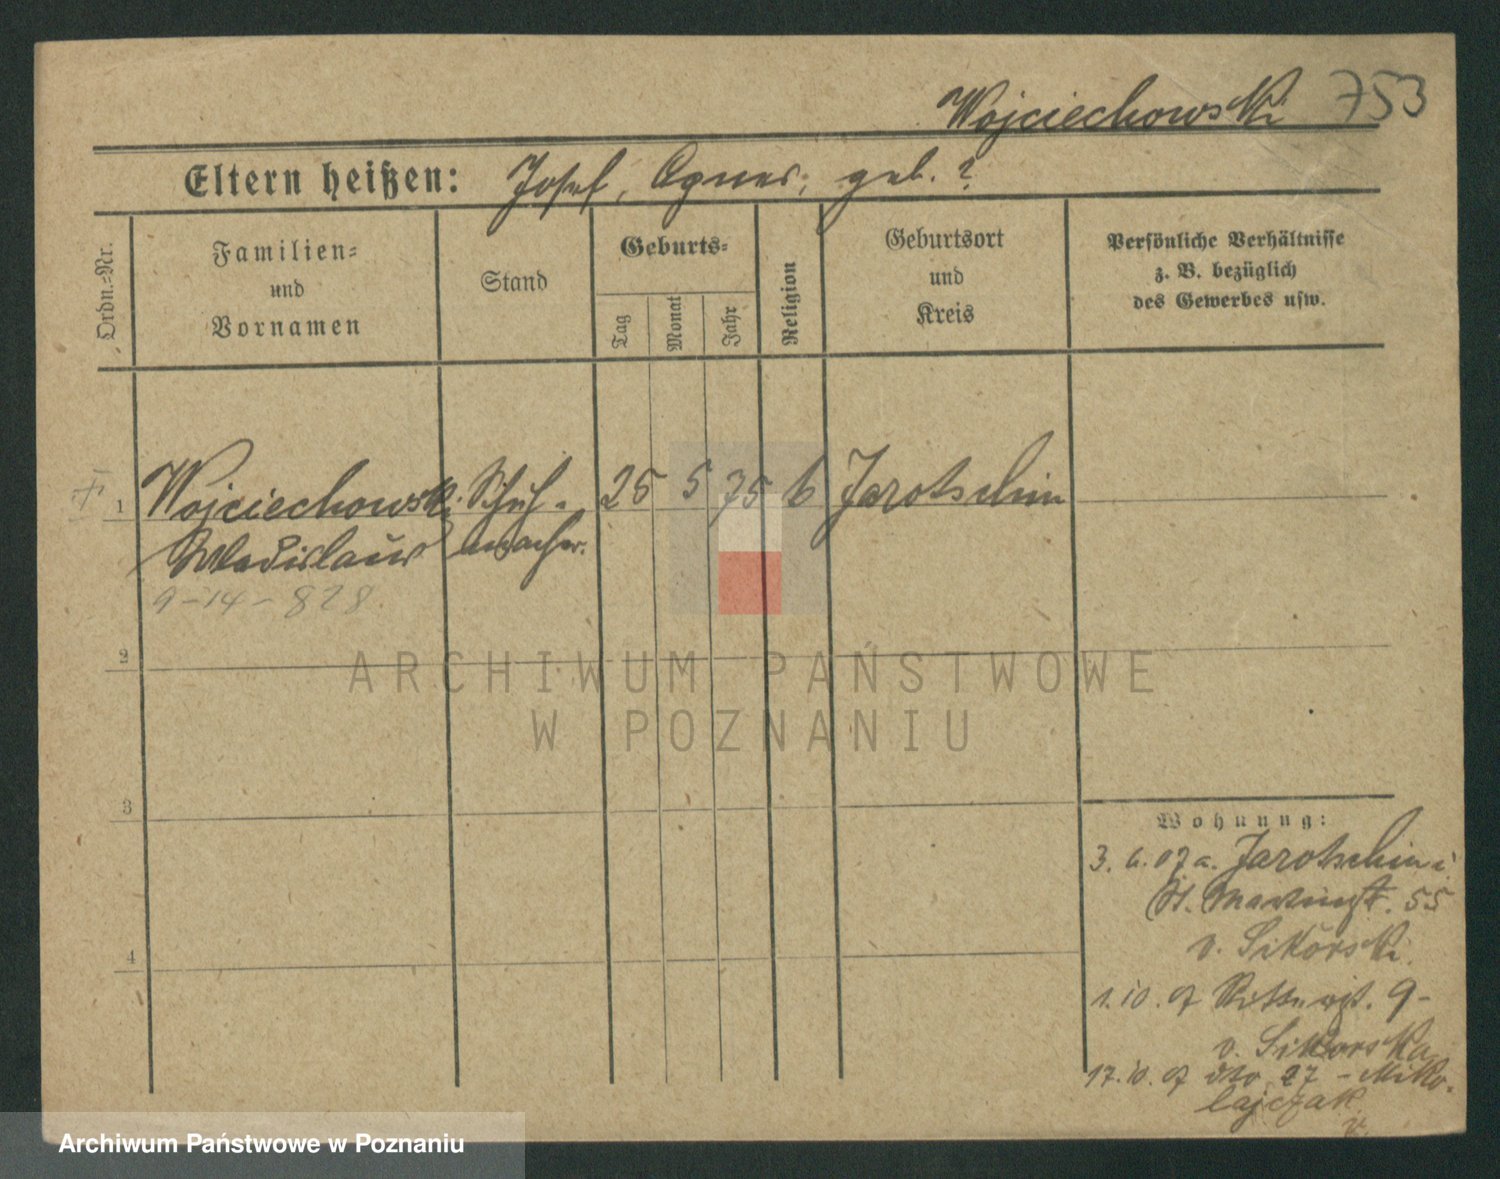 Wojciechowski 753
Eltern heißen: Josef, Agnes, geb. ?
Ordn.-Nr.
Familien-
und
Vornamen
Stand
Geburts-
Tag
Monat
Jahr
Religion
Geburtsort
und
Kreis
Persönliche Verhältnisse
z. B. bezüglich
des Gewerbes usw.
1 Wojciechowski Schuh- 25 5 75 Jarotschin
Wladislaus macher.
9-14-828
2
ARCHIWUM PAŃSTWOWE
W POZNANIU
3
4
Wohnung:
3. 6. 07 a. Jarotschin
St. Martinst. 55
v. Sikorski.
1. 10. 07 Ritterst. 9-
v. Sikorska
17. 10. 07 dto 27 - Miko-
lajczak
v.
Archiwum Państwowe w Poznaniu